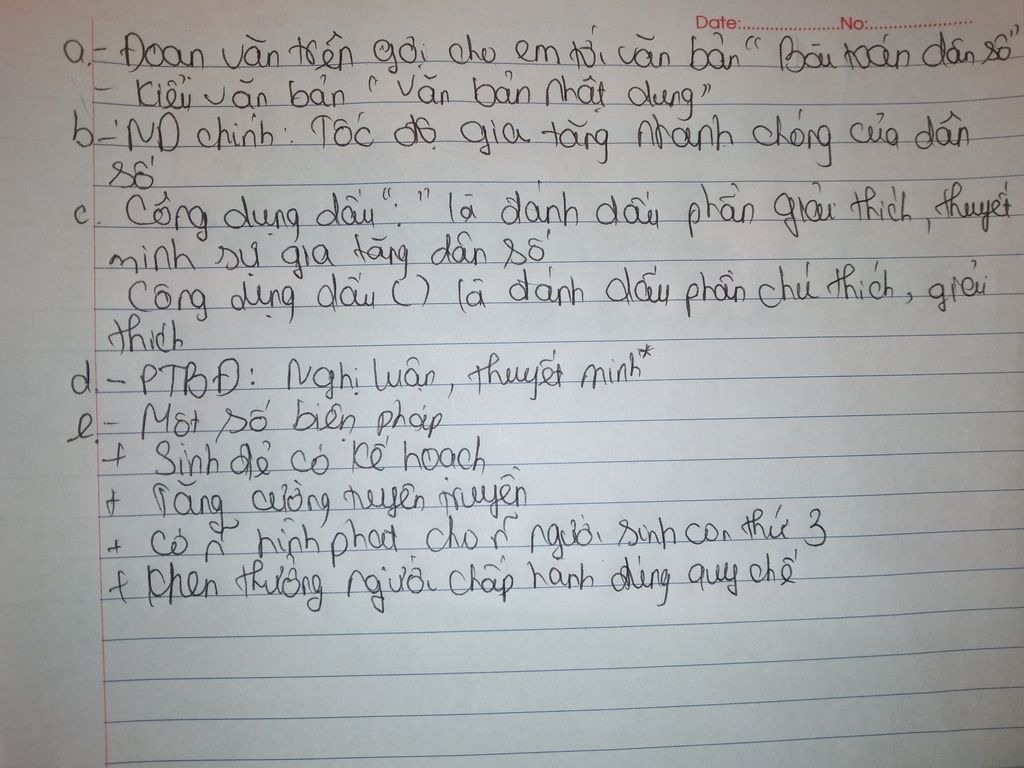 Date:....................No:......................
a.- Đoạn văn trên gợi cho em tới văn bản “Bài toán dân số”
- Kiểu văn bản “Văn bản nhật dụng”
b.- ND chính: Tốc độ gia tăng nhanh chóng của dân
số
c. Công dụng dấu “:” là đánh dấu phần giải thích, thuyết
minh sự gia tăng dân số
Công dụng dấu () là đánh dấu phần chú thích, giải
thích
d.- PTBĐ: Nghị luận, thuyết minh*
e.- Một số biện pháp
+ Sinh đẻ có kế hoạch
+ Tăng cường tuyên truyền
+ Có n~ hình phạt cho n~ người sinh con thứ 3
+ Khen thưởng người chấp hành đúng quy chế